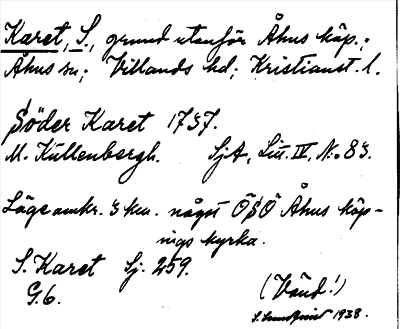 Karet, S., grund utanför Åhus köp.;
Åhus sn; Villands hd; Kristianst. l.
Söder Karet 1737.
M. Kullenbergh. SjA, Litt. IV, N:o 83.
Läge omkr. 3 km. något ÖSÖ Åhus köp-
ings kyrka.
S. Karet Sj. 259.
G. 6.
(Vänd!)
1938.